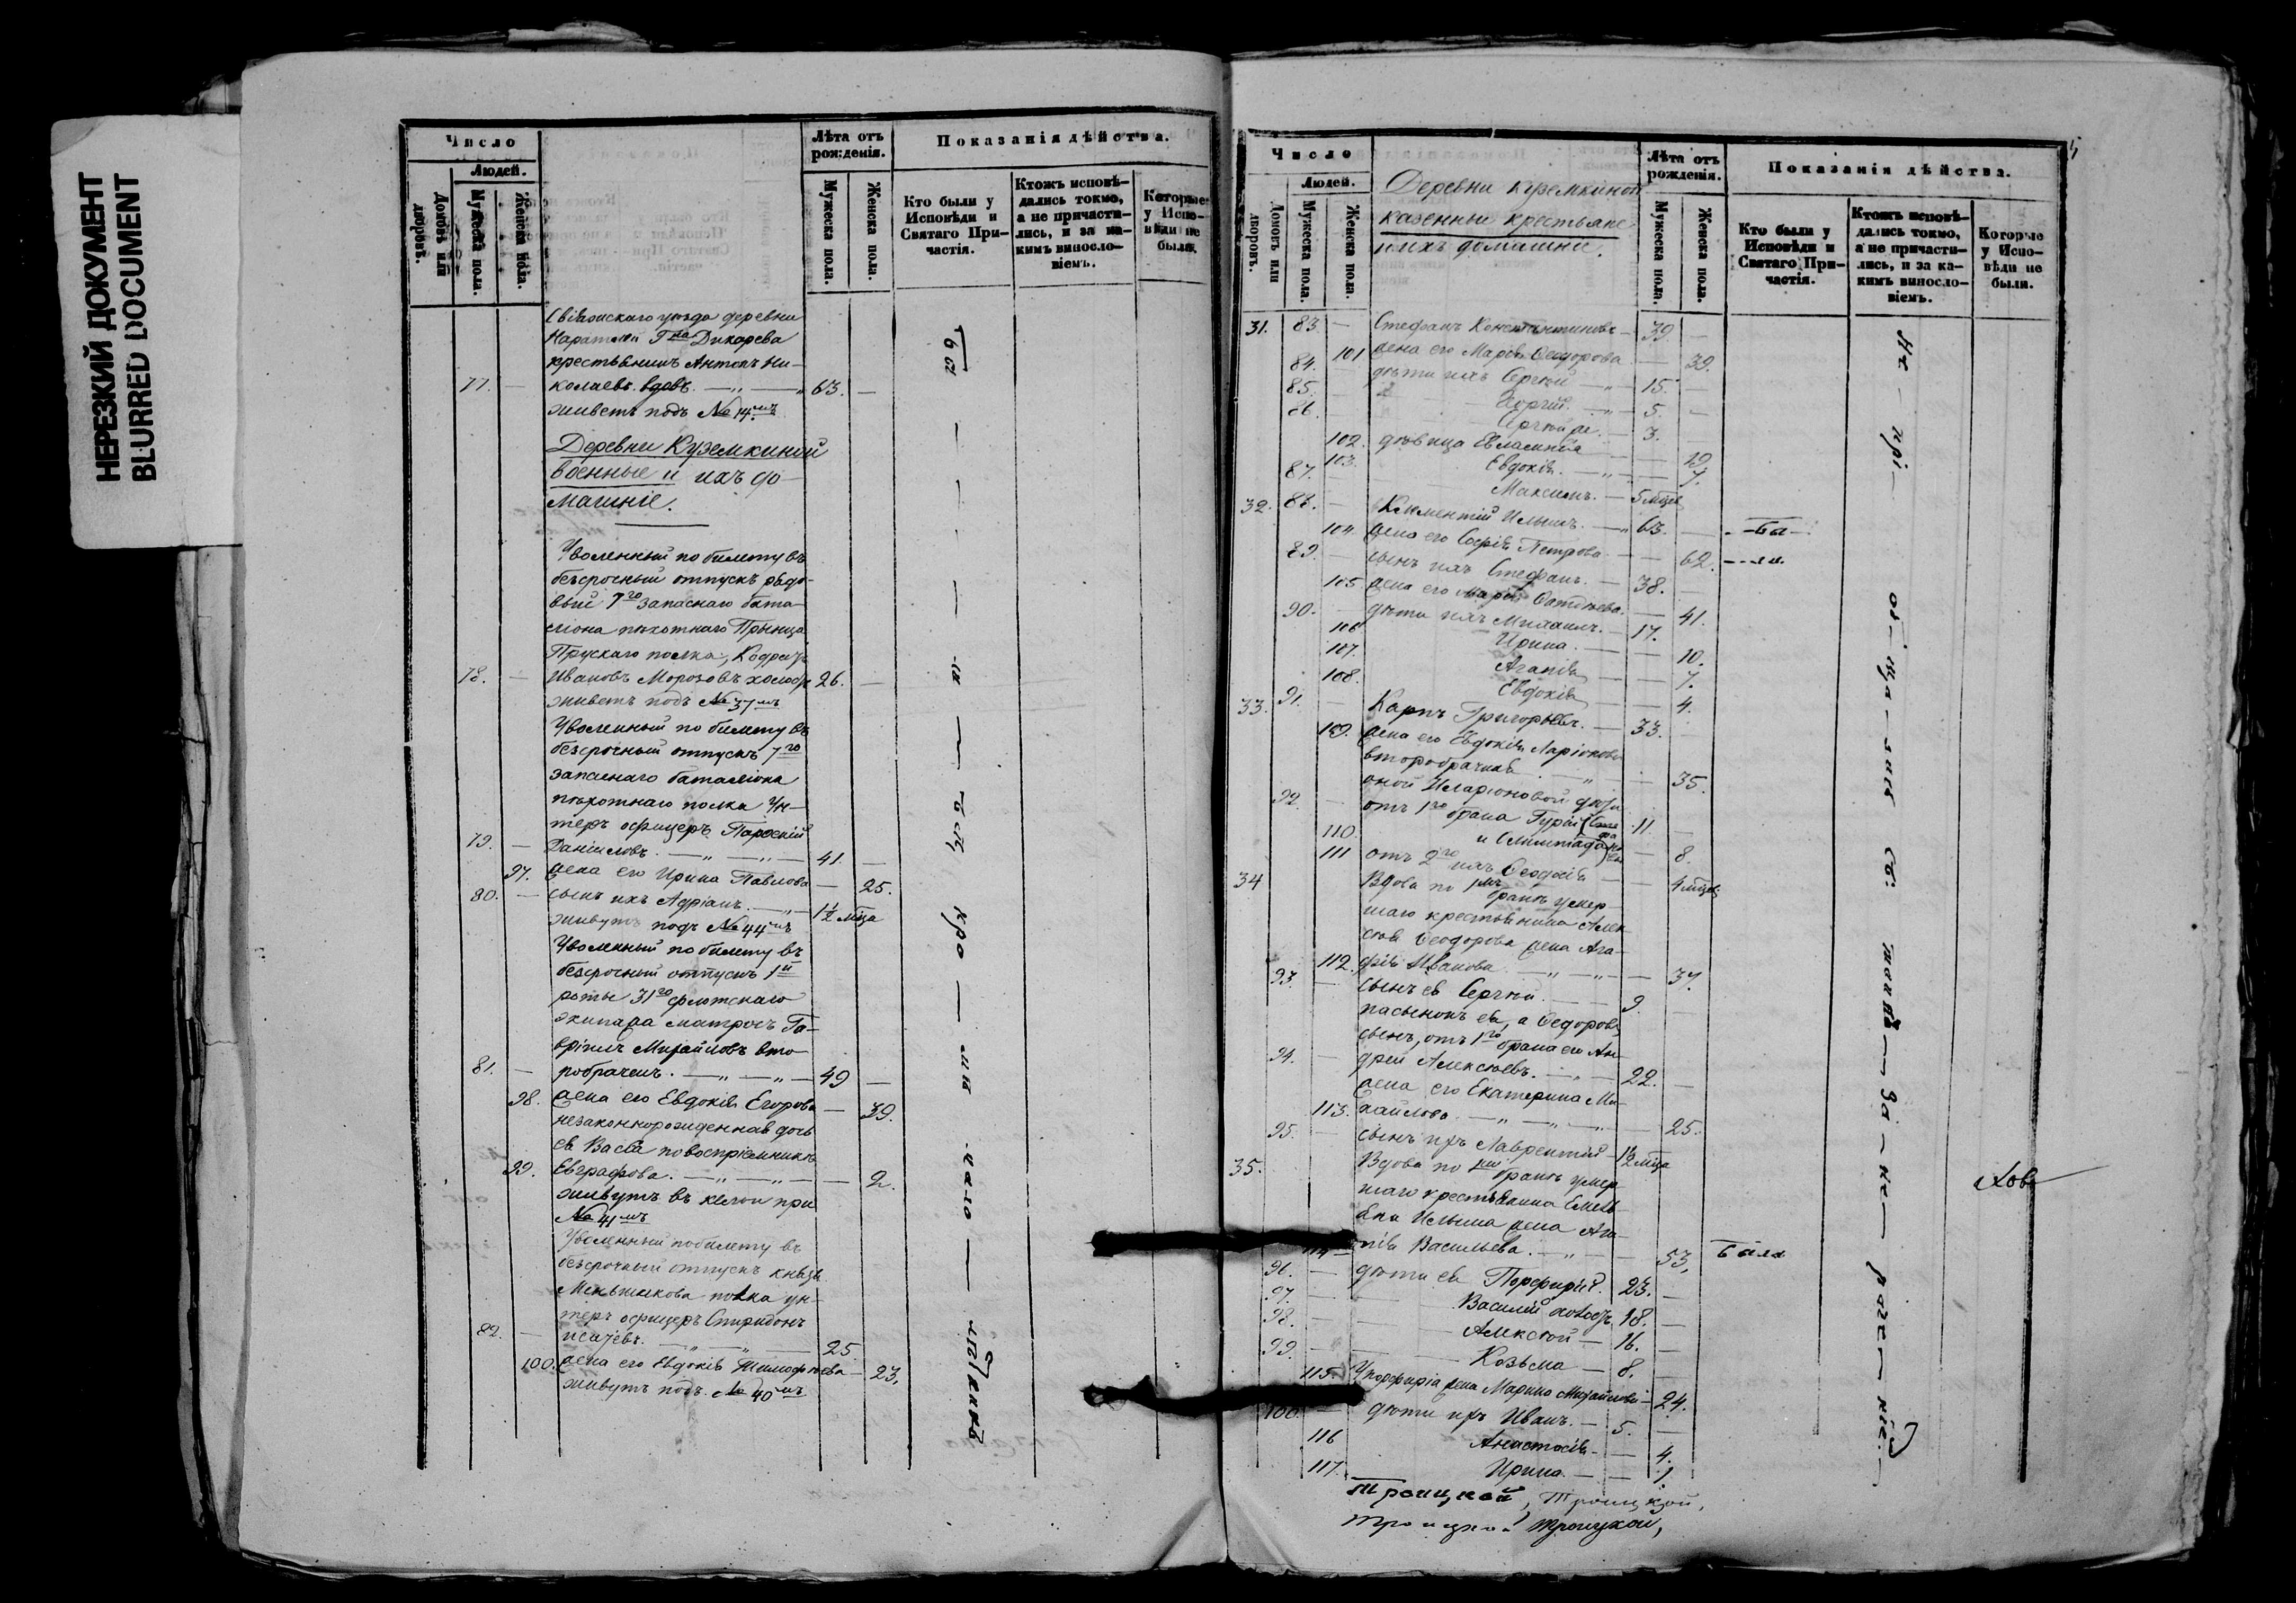 НЕРЕЗКИЙ ДОКУМЕНТ
BLURRED DOCUMENT
Число
Людей.
Домовъ или дворовъ.
Мужеска пола.
Женска пола.
Лѣта отъ рожденія.
Мужеска пола.
Женска пола.
Показанія дѣйства.
Кто были у Исповѣди и Святаго Причастія.
Ктожъ исповѣдались токмо, а не причастились, и за какимъ винословіемъ.
Которые у Исповѣди не были.
Свіяжскаго уѣзда деревни
Г на Дикарева
крестьянинъ Антонъ Ни-
77. — колаевъ вдовъ. 63. —
живетъ подъ № 14 мъ
Деревни Куземкиной
военные и ихъ до-
машніе.
Уволенный по билету въ
безсрочный отпускъ рядо-
вый 7 го запаснаго бата-
ліона пѣхотнаго Принца
Прускаго полка, Кодратъ
78. — Ивановъ Морозовъ холостъ 26. —
живетъ подъ № 37 мъ
Уволенный по билету въ
безсрочный отпускъ 7 го
запаснаго баталіона
пѣхотнаго полка Ун-
теръ офицеръ
79. — Даніиловъ. 41. —
97. жена его Ирина Павлова — 25.
80. — сынъ ихъ Адріанъ. 1 1/2 мѣца
живутъ подъ № 44 мъ
Уволенный по билету въ
безсрочный отпускъ 1 й
роты 31 го флотскаго
экипажа матросъ Га-
вріилъ Михайловъ вто-
81. — робраченъ. 49 —
98. жена его Евдокія Егорова — 39.
незаконнорожденная дочь
ея Васса по воспріемнику
99. Евграфова. — 2.
живутъ въ кельи при
№ 41 мъ
Уволенный по билету въ
безсрочный отпускъ князя
Меньшикова полка ун-
теръ офицеръ Спиридонъ
82. — Исаевъ. 25
100. жена его Евдокія Тимофѣева — 23.
живутъ подъ № 40 мъ
Число
Людей.
Домовъ или дворовъ.
Мужеска пола.
Женска пола.
Деревни Куземкиной
казенные крестьяне
и ихъ домашніе.
Лѣта отъ рожденія.
Мужеска пола.
Женска пола.
Показанія дѣйства.
Кто были у Исповѣди и Святаго Причастія.
Ктожъ исповѣдались токмо, а не причастились, и за какимъ винословіемъ.
Которые у Исповѣди не были.
31. 83. — Стефанъ Константиновъ — 39. —
101 жена его Марія Ѳеодорова — 39.
84. дѣти ихъ Сергѣй — 15. —
85. 5. —
86. 3. —
102. дѣвица Евлампія — 19
103. Евдокія. — 7.
87. — Максимъ. — 5 мѣцев
32. 88. — Климентій Ильинъ. — 63. —
104. жена его Софія Петрова — 62.
89. — сынъ ихъ Стефанъ. — 38. —
105. жена его Марія — 41.
90. — дѣти ихъ Михаилъ. — 17.
106 Ирина. — 10.
107. Агапія — 7.
108. Евдокія — 4.
33. 91. — Карпъ Григорьевъ. — 33.
109. жена его Евдокія Ларіонова
второбрачная — 35.
оной Иларіоновой дѣти
92. — отъ 1 го брака Гурій 11. —
110. и Олимпіада — 8.
111 отъ 2 го ихъ Ѳеодосія — 4 мѣцев
34 Вдова по 1 мъ бракѣ умер-
шаго крестьянина Алек-
сѣя Ѳеодорова жена Ага-
112. фія Иванова — 37.
93. — сынъ ея Сергѣй. — 9. —
пасынокъ ея, а Ѳедорова
сынъ, отъ 1 го брака его Ан-
94. — дрей Алексѣевъ. 22. —
жена его Екатерина Ми-
113. хайлова — 25.
95. — сынъ ихъ Лаврентій — 1 1/2 мѣца
35. Вдова по 1 мъ бракѣ умер-
шаго крестьянина Емель-
яна Ильина жена Ага-
114 пія Васильева. — 53. была
96. — дѣти ея Порфирій. 23. —
97. — Василій холостъ 18. —
98. — Алексѣй — 16. —
99. — Козьма — 8. —
115. У порфирія жена Марина Михайлова — 24.
100. — дѣти ихъ Иванъ. — 5. —
116 Анастасія — 4.
117. Ирина. — 1
Троицкой, Троицкой,
Троицкой Троицкой,